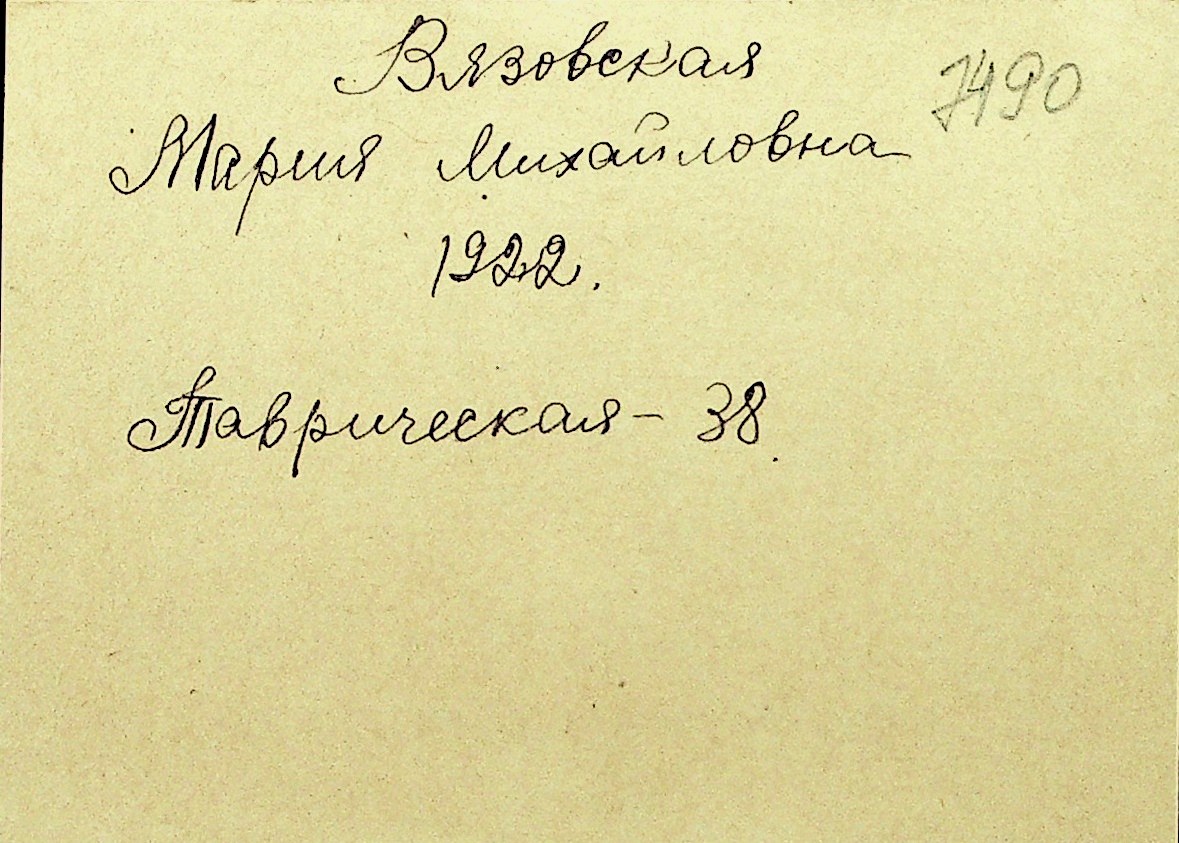 Вязовская
7490
Мария Михайловна
1922.
Таврическая - 38.